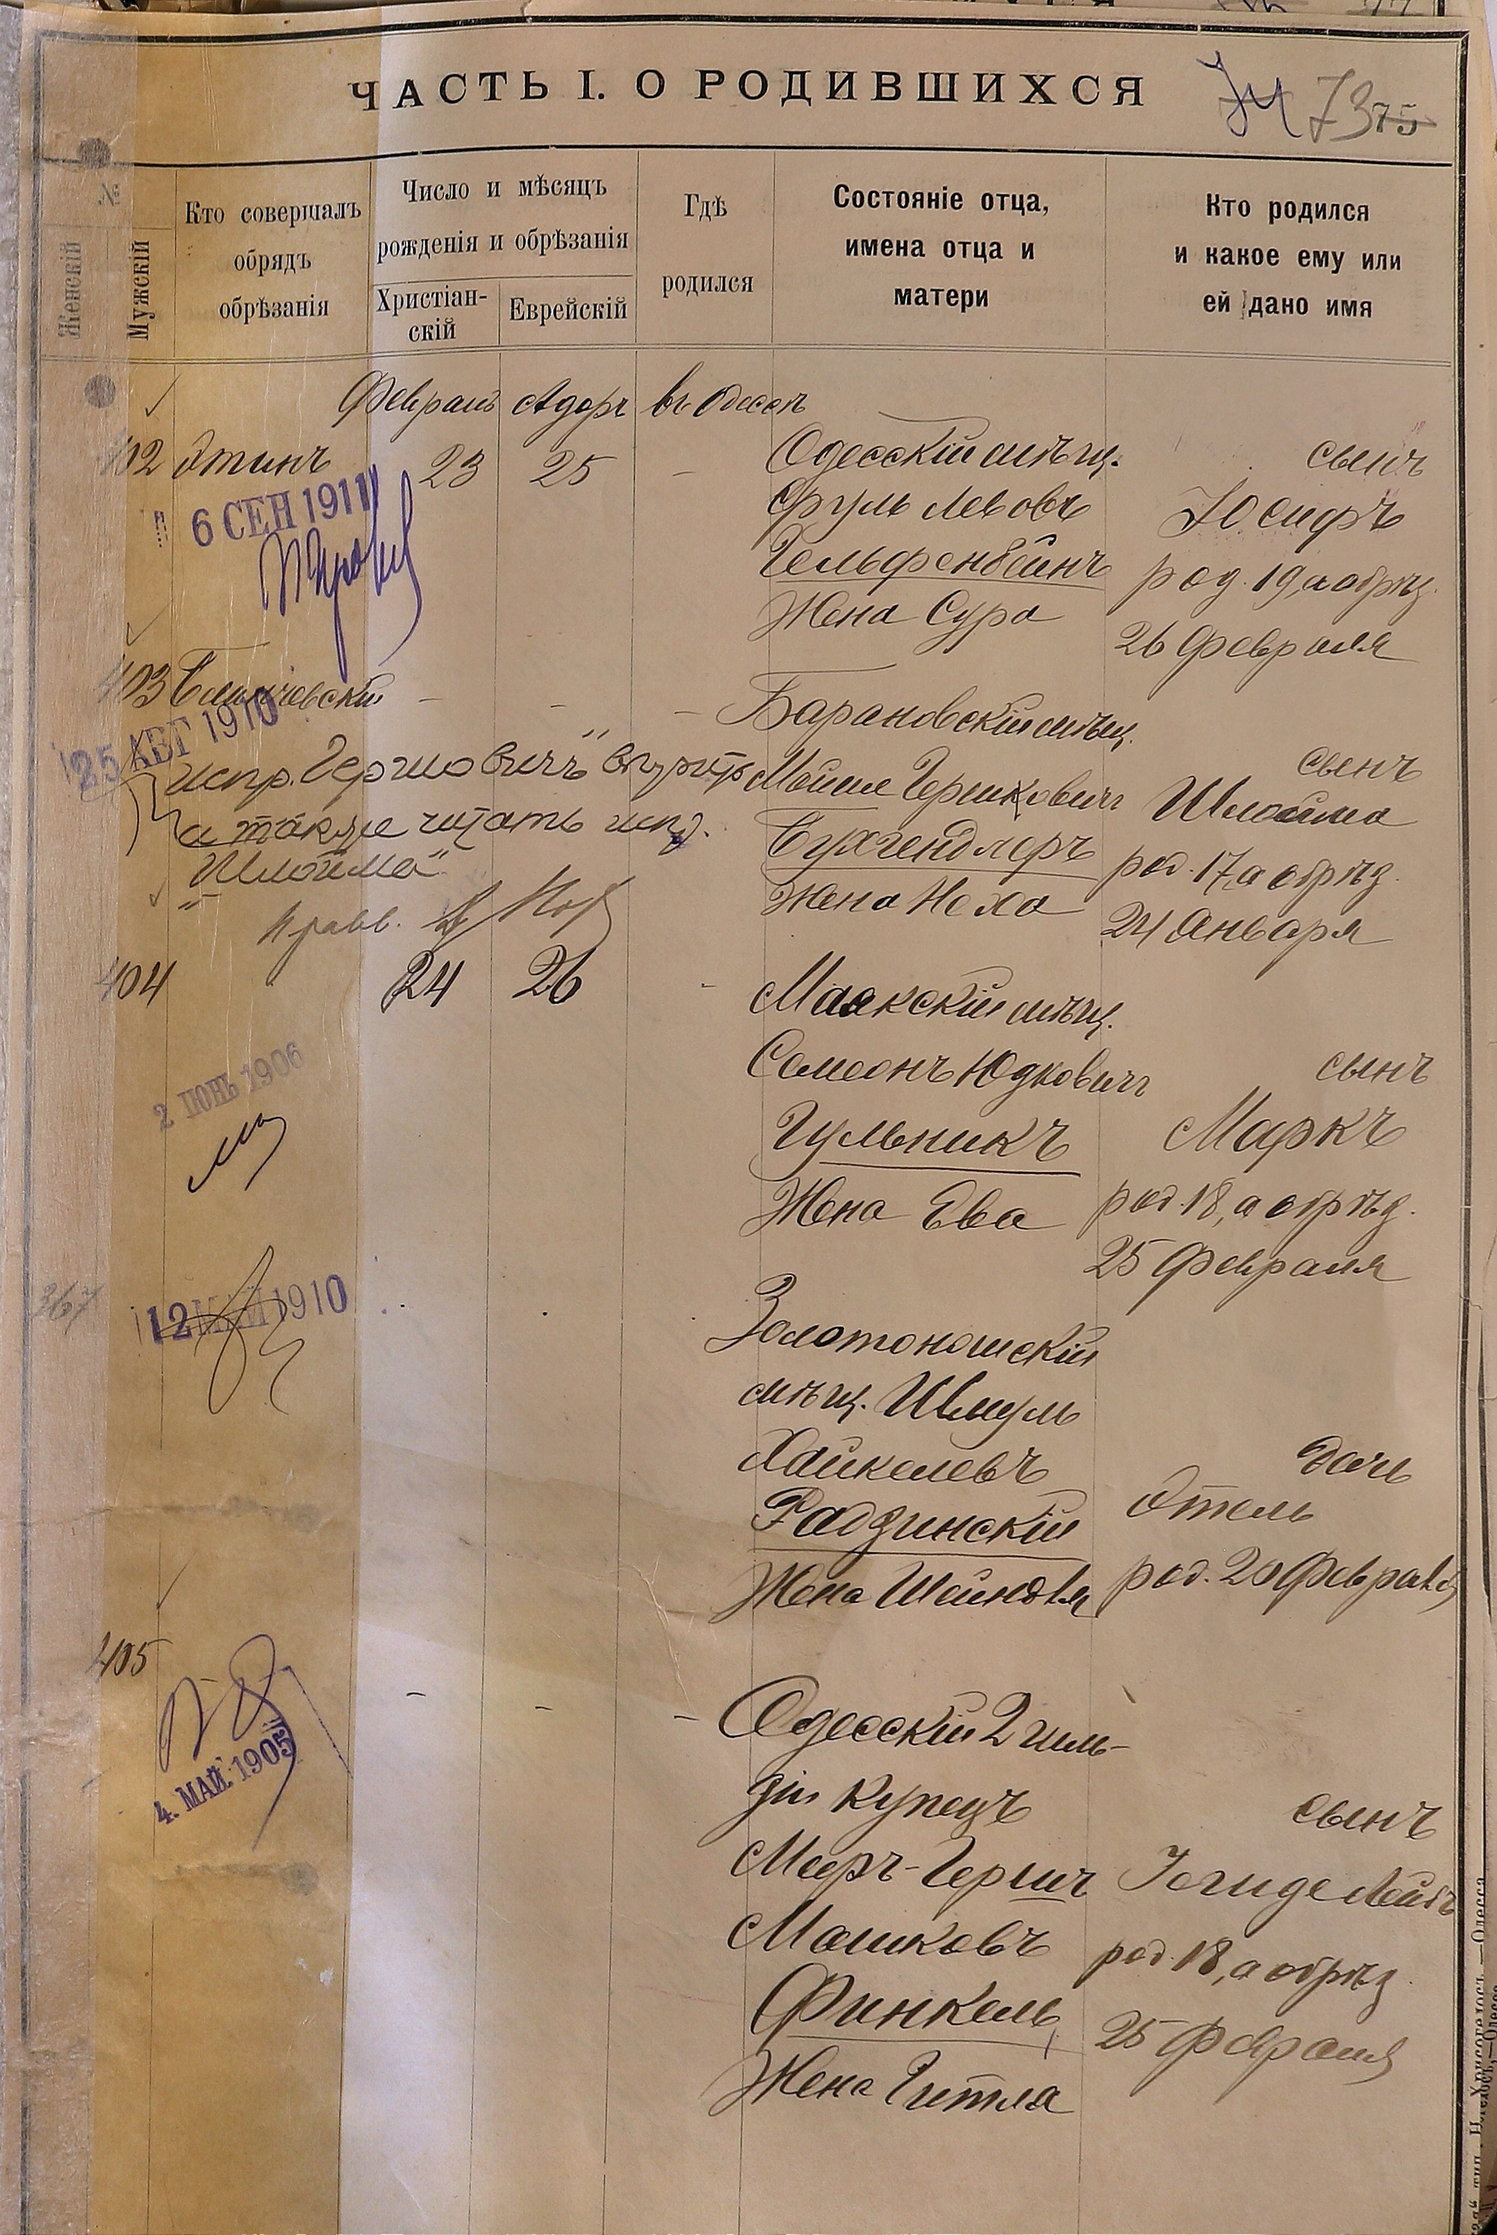 ЧАСТЬ I. О РОДИВШИХСЯ
74 73 75
№
Женскій
Мужскій
Кто совершалъ
обрядъ
обрѣзанія
Число и мѣсяцъ
рожденія и обрѣзанія
Христіан-
скій
Еврейскій
Гдѣ
родился
Состояніе отца,
имена отца и
матери
Кто родился
и какое ему или
ей дано имя
Февраль Адаръ въ Одессѣ
402 Этинъ 23 25 -
6 СЕН 1911
Одесскій мѣщ.
Сруль Левовъ
Гельфенбейнъ
Жена Сура
сынъ
Іосифъ
род. 19, а обрѣз.
26 Февраля
403
25 АВГ 1910
испр. "Гершовичъ"
а также читать испр.
"Шлойма"
Барановскій мѣщ.
Мойше Гершковичъ
Бухгендлеръ
Жена Неха
сынъ
Шлойма
род. 17, а обрѣз.
24 Января
404 24 26 -
2 ІЮНЬ 1906
Маякскій мѣщ.
Семеонъ Юдковичъ
Гульникъ
Жена Ева
сынъ
Маркъ
род. 18, а обрѣз.
25 Февраля
367
12 МАЙ 1910
Золотоношскій
мѣщ. Шмуль
Хайкелевъ
Радзинскій
Жена Шейндля
дочь
Этель
род. 20 Февраля
405 - - -
4. МАЙ. 1905
Одесскій 2 гиль-
діи Купецъ
Мееръ-Гершъ
Мошковъ
Финкель
Жена Гитля
сынъ
Іегиде Лейбъ
род. 18, а обрѣз.
25 Февраля